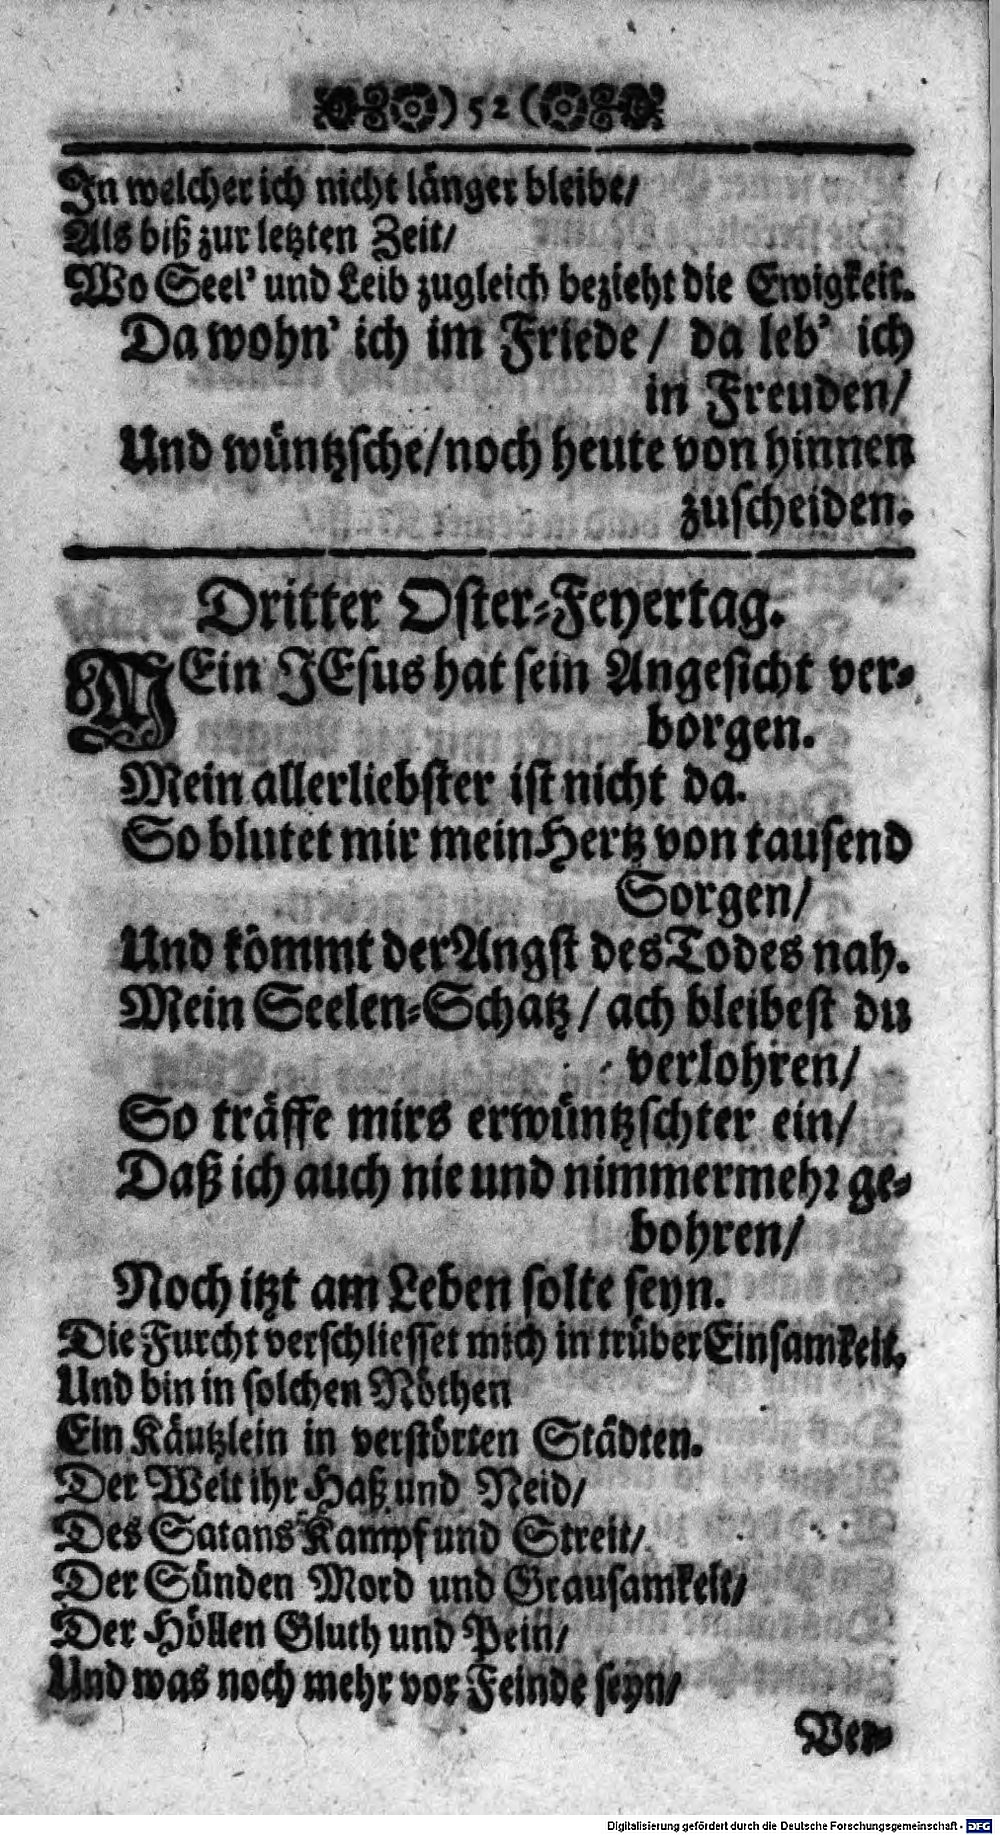 ) 52 (
In welcher ich nicht länger bleibe/
Als biß zur letzten Zeit/
Wo Seel' und Leib zugleich bezieht die Ewigkeit.
Da wohn' ich im Friede / da leb' ich
in Freuden/
Und wüntzsche/noch heute von hinnen
zuscheiden.
Dritter Oster-Feyertag.
MEin JEsus hat sein Angesicht ver-
borgen.
Mein allerliebster ist nicht da.
So blutet mir mein Hertz von tausend
Sorgen/
Und kömmt der Angst des Todes nah.
Mein Seelen-Schatz / ach bleibest du
verlohren/
So träffe mirs erwüntzschter ein/
Daß ich auch nie und nimmermehr ge-
bohren/
Noch itzt am Leben solte seyn.
Die Furcht verschliesset mich in trüber Einsamkeit,
Und bin in solchen Nöthen
Ein Käutzlein in verstörten Städten.
Der Welt ihr Haß und Neid/
Des Satans Kampf und Streit/
Der Sünden Mord und Grausamkeit/
Der Höllen Gluth und Pein/
Und was noch mehr vor Feinde seyn/
Ver-
Digitalisierung gefördert durch die Deutsche Forschungsgemeinschaft - DFG